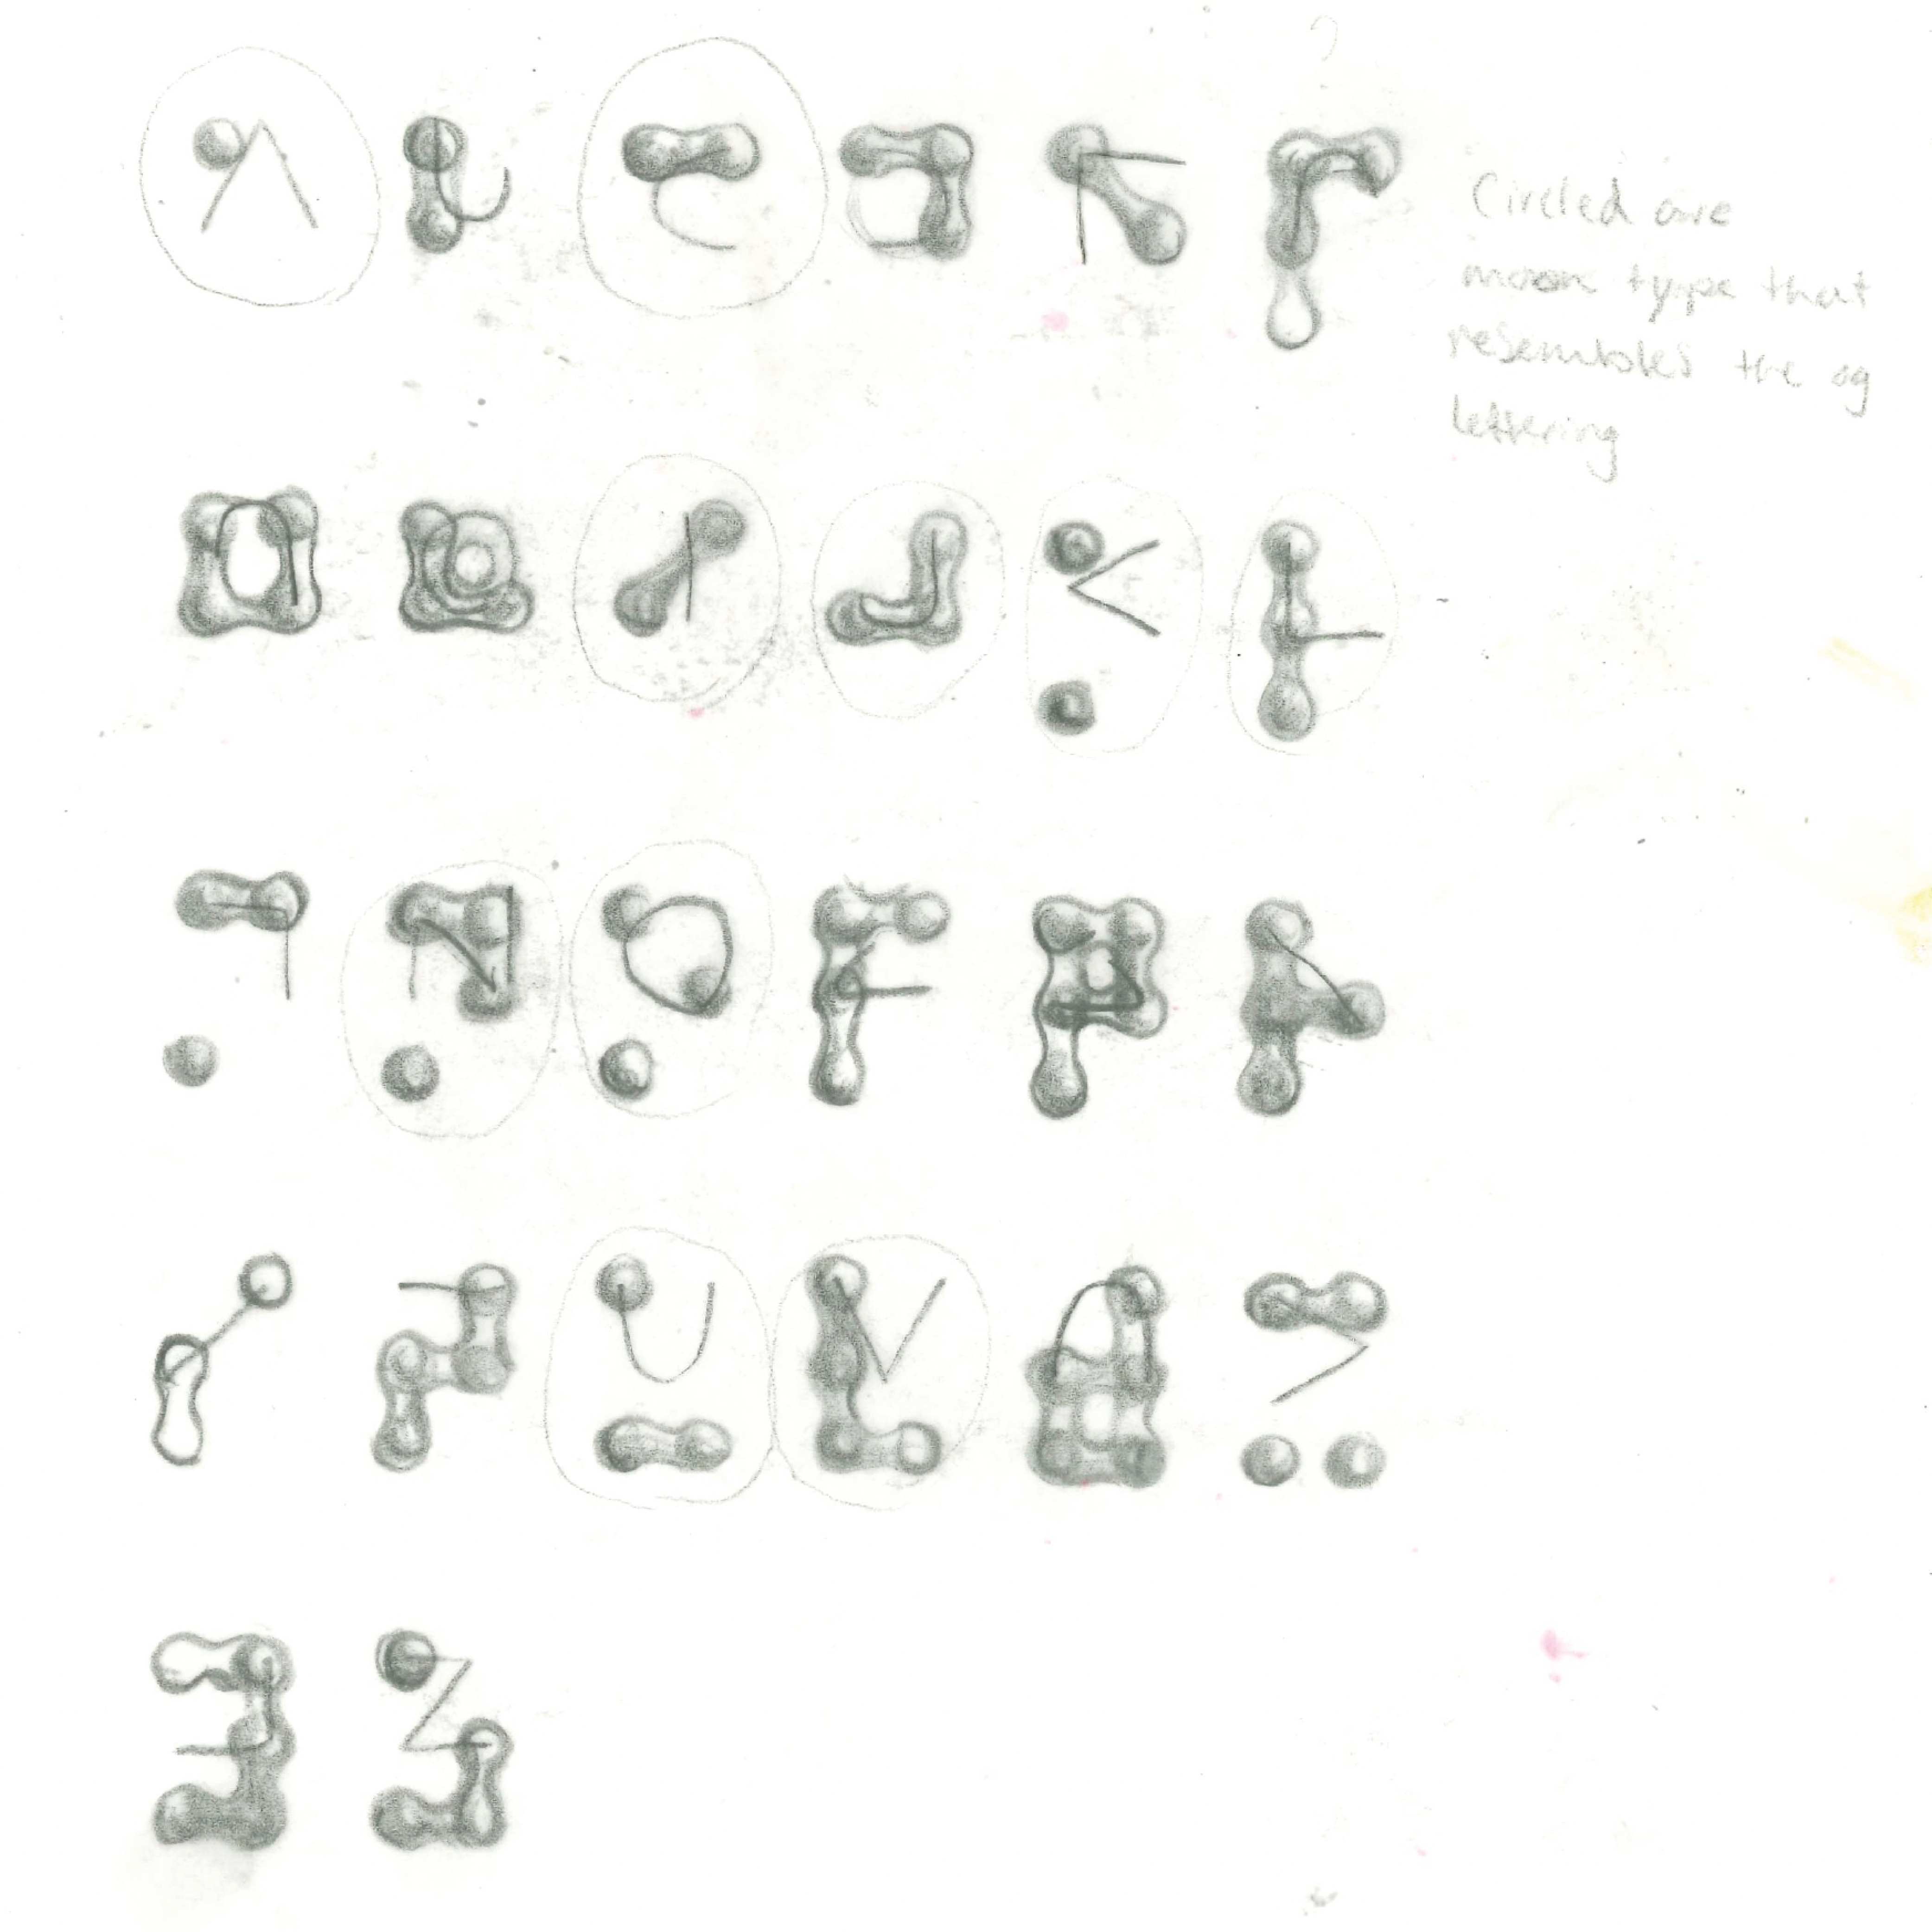 Circled are
moon type that
resembles the og
lettering